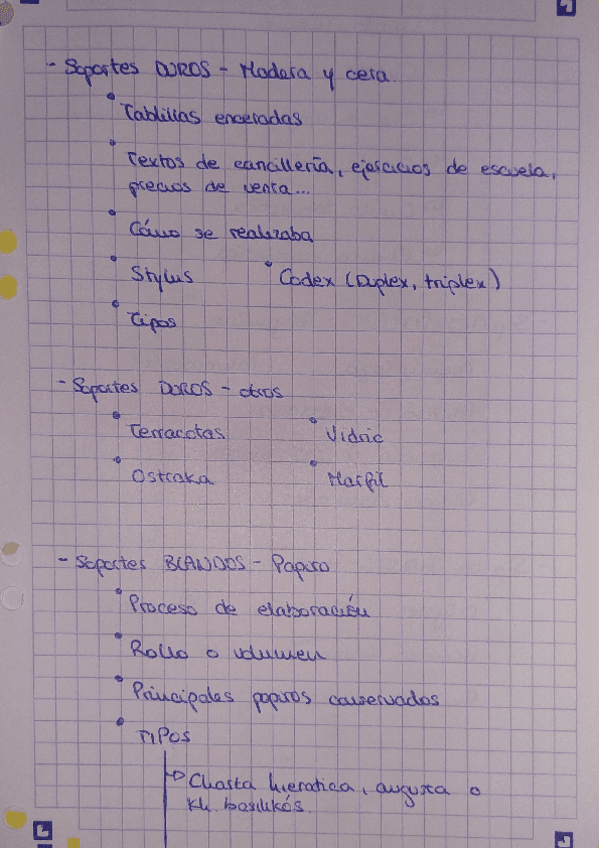 - Soportes DUROS - Madera y cera
• Tablillas enceradas
• Textos de cancillería, ejercicios de escuela,
precios de venta...
• Cómo se realizaba
• Stylus • Codex (Duplex, triplex)
• Tipos
- Soportes DUROS - otros
• Terracotas • Vidrio
• Ostraka • Marfil
- Soportes BLANDOS - Papiro
• Proceso de elaboración
• Rollo o volumen
• Principales papiros conservados
• TIPOS
→ Charta hieratica, augusta o
Kh. basilikós.